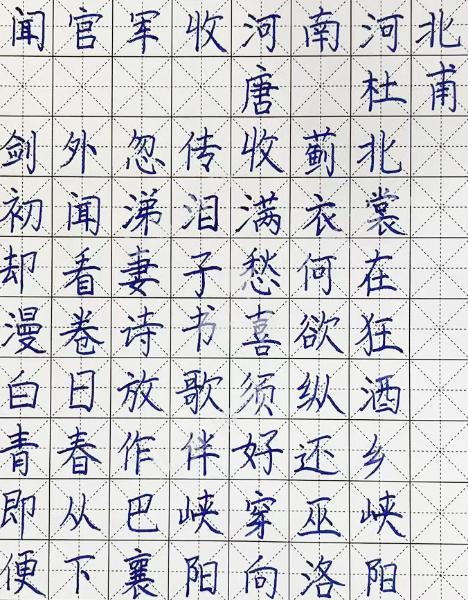 闻官军收河南河北
唐 杜甫
剑外忽传收蓟北
初闻涕泪满衣裳
却看妻子愁何在
漫卷诗书喜欲狂
白日放歌须纵酒
青春作伴好还乡
即从巴峡穿巫峡
便下襄阳向洛阳